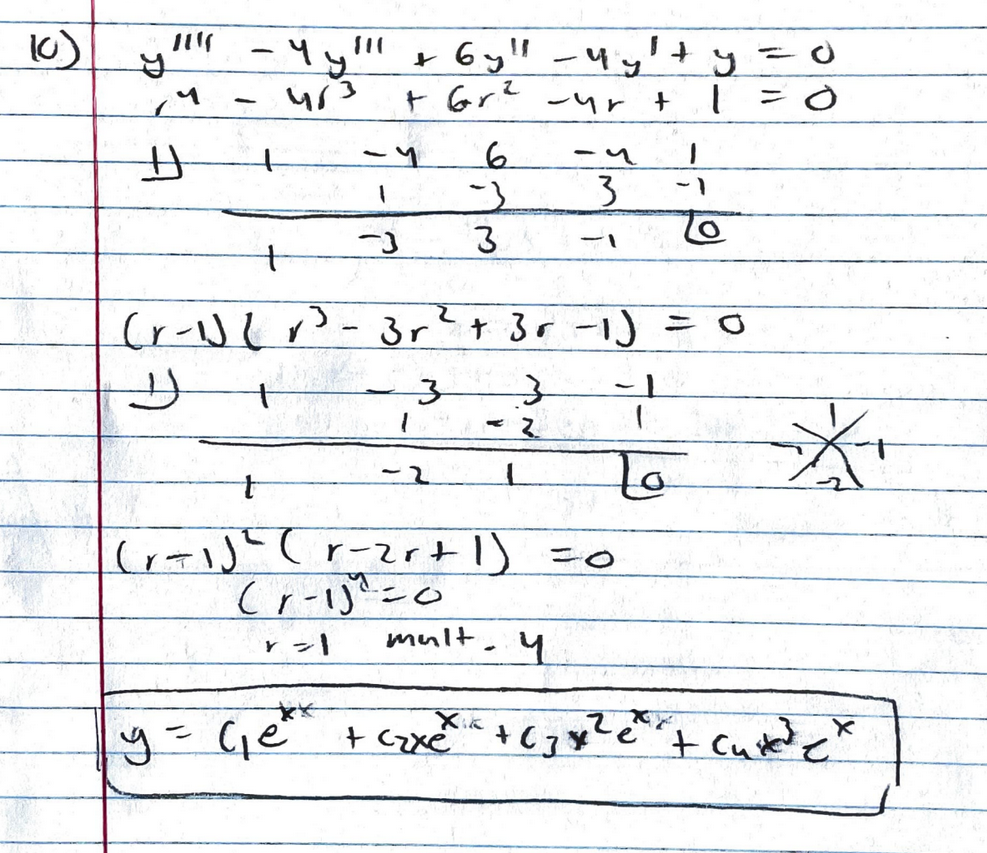 10) y'''' - 4y''' + 6y'' - 4y' + y = 0
r⁴ - 4r³ + 6r² - 4r + 1 = 0
1) 1 -4 6 -4 1
1 -3 3 -1
1 -3 3 -1 0
(r-1)(r³ - 3r² + 3r - 1) = 0
1) 1 -3 3 -1
1 -2 1
1 -2 1 0
1
-1 -1
-2
(r-1)² (r-2r+1) = 0
(r-1)⁴ = 0
r=1 mult. 4
y = C₁eˣ + C₂xeˣ + C₃x²eˣ + C₄x³eˣ